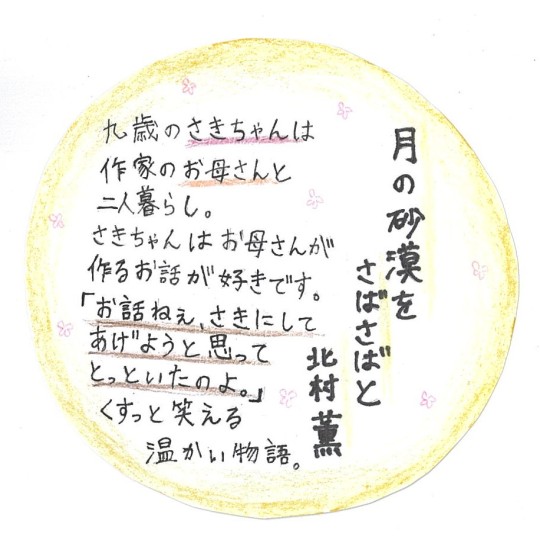 月の砂漠を
さばさばと
北村薫
九歳のさきちゃんは
作家のお母さんと
二人暮らし。
さきちゃんはお母さんが
作るお話が好きです。
「お話ねぇ、さきにして
あげようと思って
とっといたのよ。」
くすっと笑える
温かい物語。